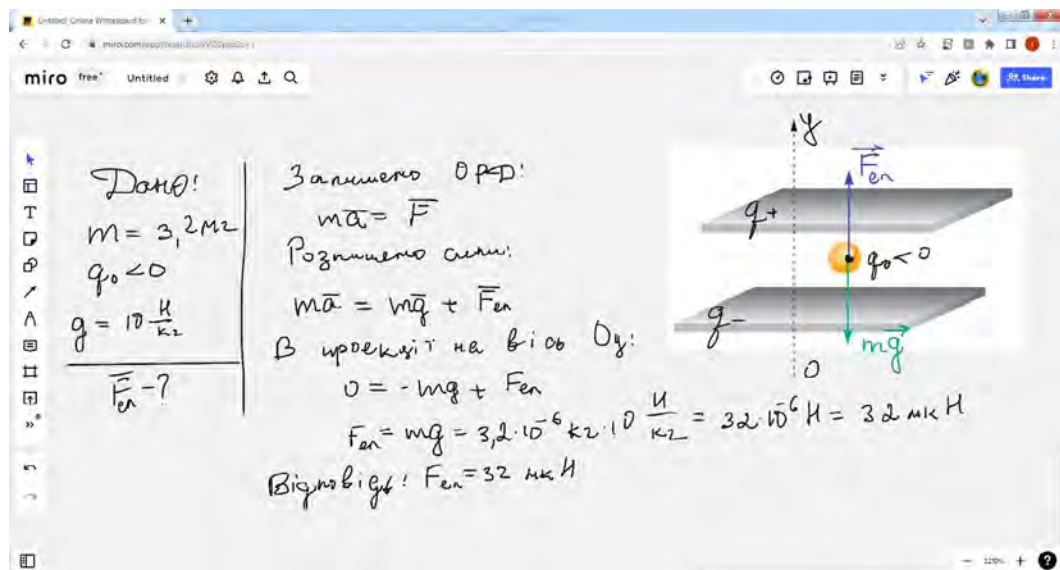 Untitled, Online Whiteboard for
miro free Untitled
Share
Дано:
m = 3,2 мг
q₀ < 0
g = 10 Н/кг
F̅ₑₙ - ?
Запишемо ОРД:
ma̅ = F̅
Розпишемо сили:
ma̅ = mg̅ + F̅ₑₙ
В проекції на вісь Oy:
0 = -mg + Fₑₙ
Fₑₙ = mg = 3,2·10⁻⁶ кг·10 Н/кг = 32·10⁻⁶ Н = 32 мкН
Відповідь: Fₑₙ = 32 мкН
y
F⃗ₑₙ
q+
q₀ < 0
q-
mg⃗
0